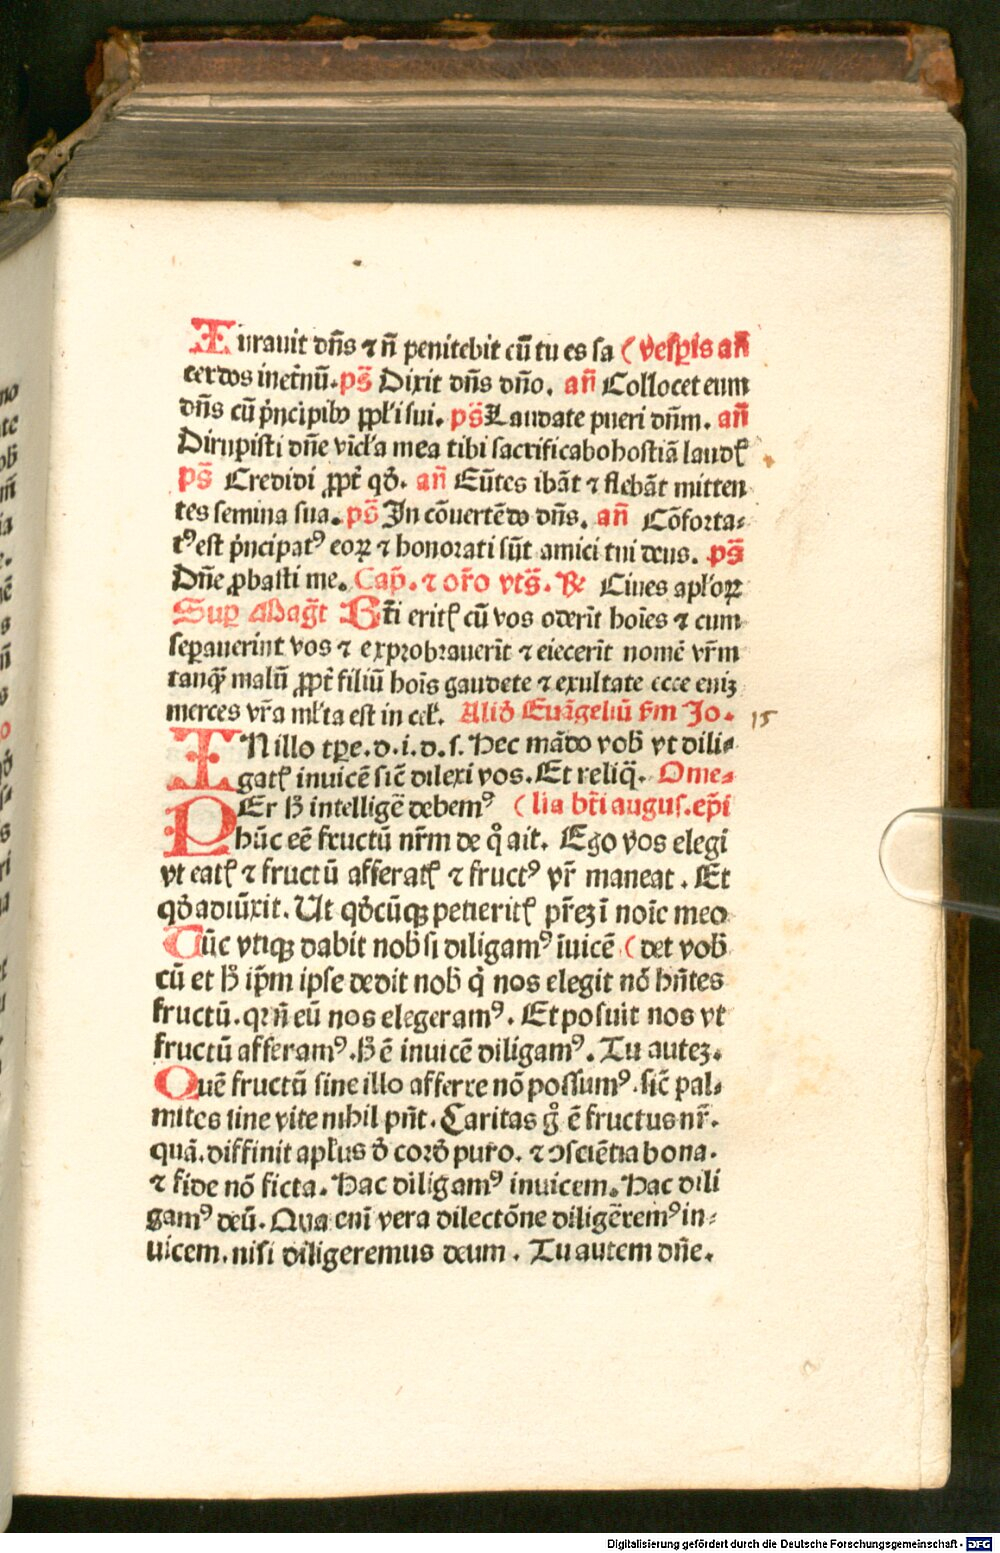 Iurauit dn̄s ⁊ n̄ penitebit cū tu es sa ( vesꝑis an̄
cerdos inet̄nū. ps̄ Dixit dn̄s dn̄o. an̄ Collocet eum
dn̄s cū p̄ncipibꝰ pp̄li sui. ps̄ Laudate pueri dn̄m. an̄
Dirupisti dn̄e vīcl'a mea tibi sacrificabo hostiā laudꝭ
ps̄ Credidi ꝓpt̄ qđ. an̄ Eūtes ibāt ⁊ flebāt mitten
tes semina sua. ps̄ In cōuertēdo dn̄s. an̄ Cōforta-
tꝰ est p̄ncipatꝰ eoꝝ ⁊ honorati sūt amici tui deus. ps̄
Dn̄e ꝓbasti me. Cap̄. ⁊ or̄o vts̄. ℟ Ciues apl'oꝝ
Suꝑ Maḡt Bt̄i eritꝭ cū vos oderīt hoīes ⁊ cum
seꝑauerint vos ⁊ exprobrauerīt ⁊ eiecerīt nomē vr̄m
tanqȝ malū ꝓpt̄ filiū hoīs gaudete ⁊ exultate ecce enīȝ
merces vr̄a ml'ta est in cel'. Aliđ Euāgeliū ẜm Jo. 15
IN illo tꝑe. d. i. d. s. Hec mādo vob̄ vt dili-
gatꝭ inuicē sic̄ dilexi vos. Et reliq̄. Ome-
PEr h̄ intelligē debemꝰ ( lia bt̄i augus. ep̄i
hūc eē fructū nr̄m de q̊ ait. Ego vos elegi
vt eatꝭ ⁊ fructū afferatꝭ ⁊ fructꝰ vr̄ maneat. Et
qđ adiūxit. Ut qđcūqȝ petieritꝭ pr̄eȝ ī noīe meo
Tūc vtiqȝ dabit nob̄ si diligamꝰ īuicē ( det vob̄
cū et h̄ ip̄m ipse dedit nob̄ q̇ nos elegit nō hn̄tes
fructū. qꝛ n̄ eū nos elegeramꝰ. Et posuit nos vt
fructū afferamꝰ. h̄ ē inuicē diligamꝰ. Tu auteȝ.
Quē fructū sine illo afferre nō possumꝰ. sic̄ pal-
mites sine vite nihil pn̄t. Caritas g̊ ē fructus nr̄.
quā. diffinit apl'us đ corđ puro. ⁊ ↄsciētia bona.
⁊ fide nō ficta. Hac diligamꝰ inuicem. Hac dili
gamꝰ deū. Qua enī vera dilectōne diligēremꝰ in-
uicem. nisi diligeremus deum. Tu autem dn̄e.
Digitalisierung gefördert durch die Deutsche Forschungsgemeinschaft - DFG